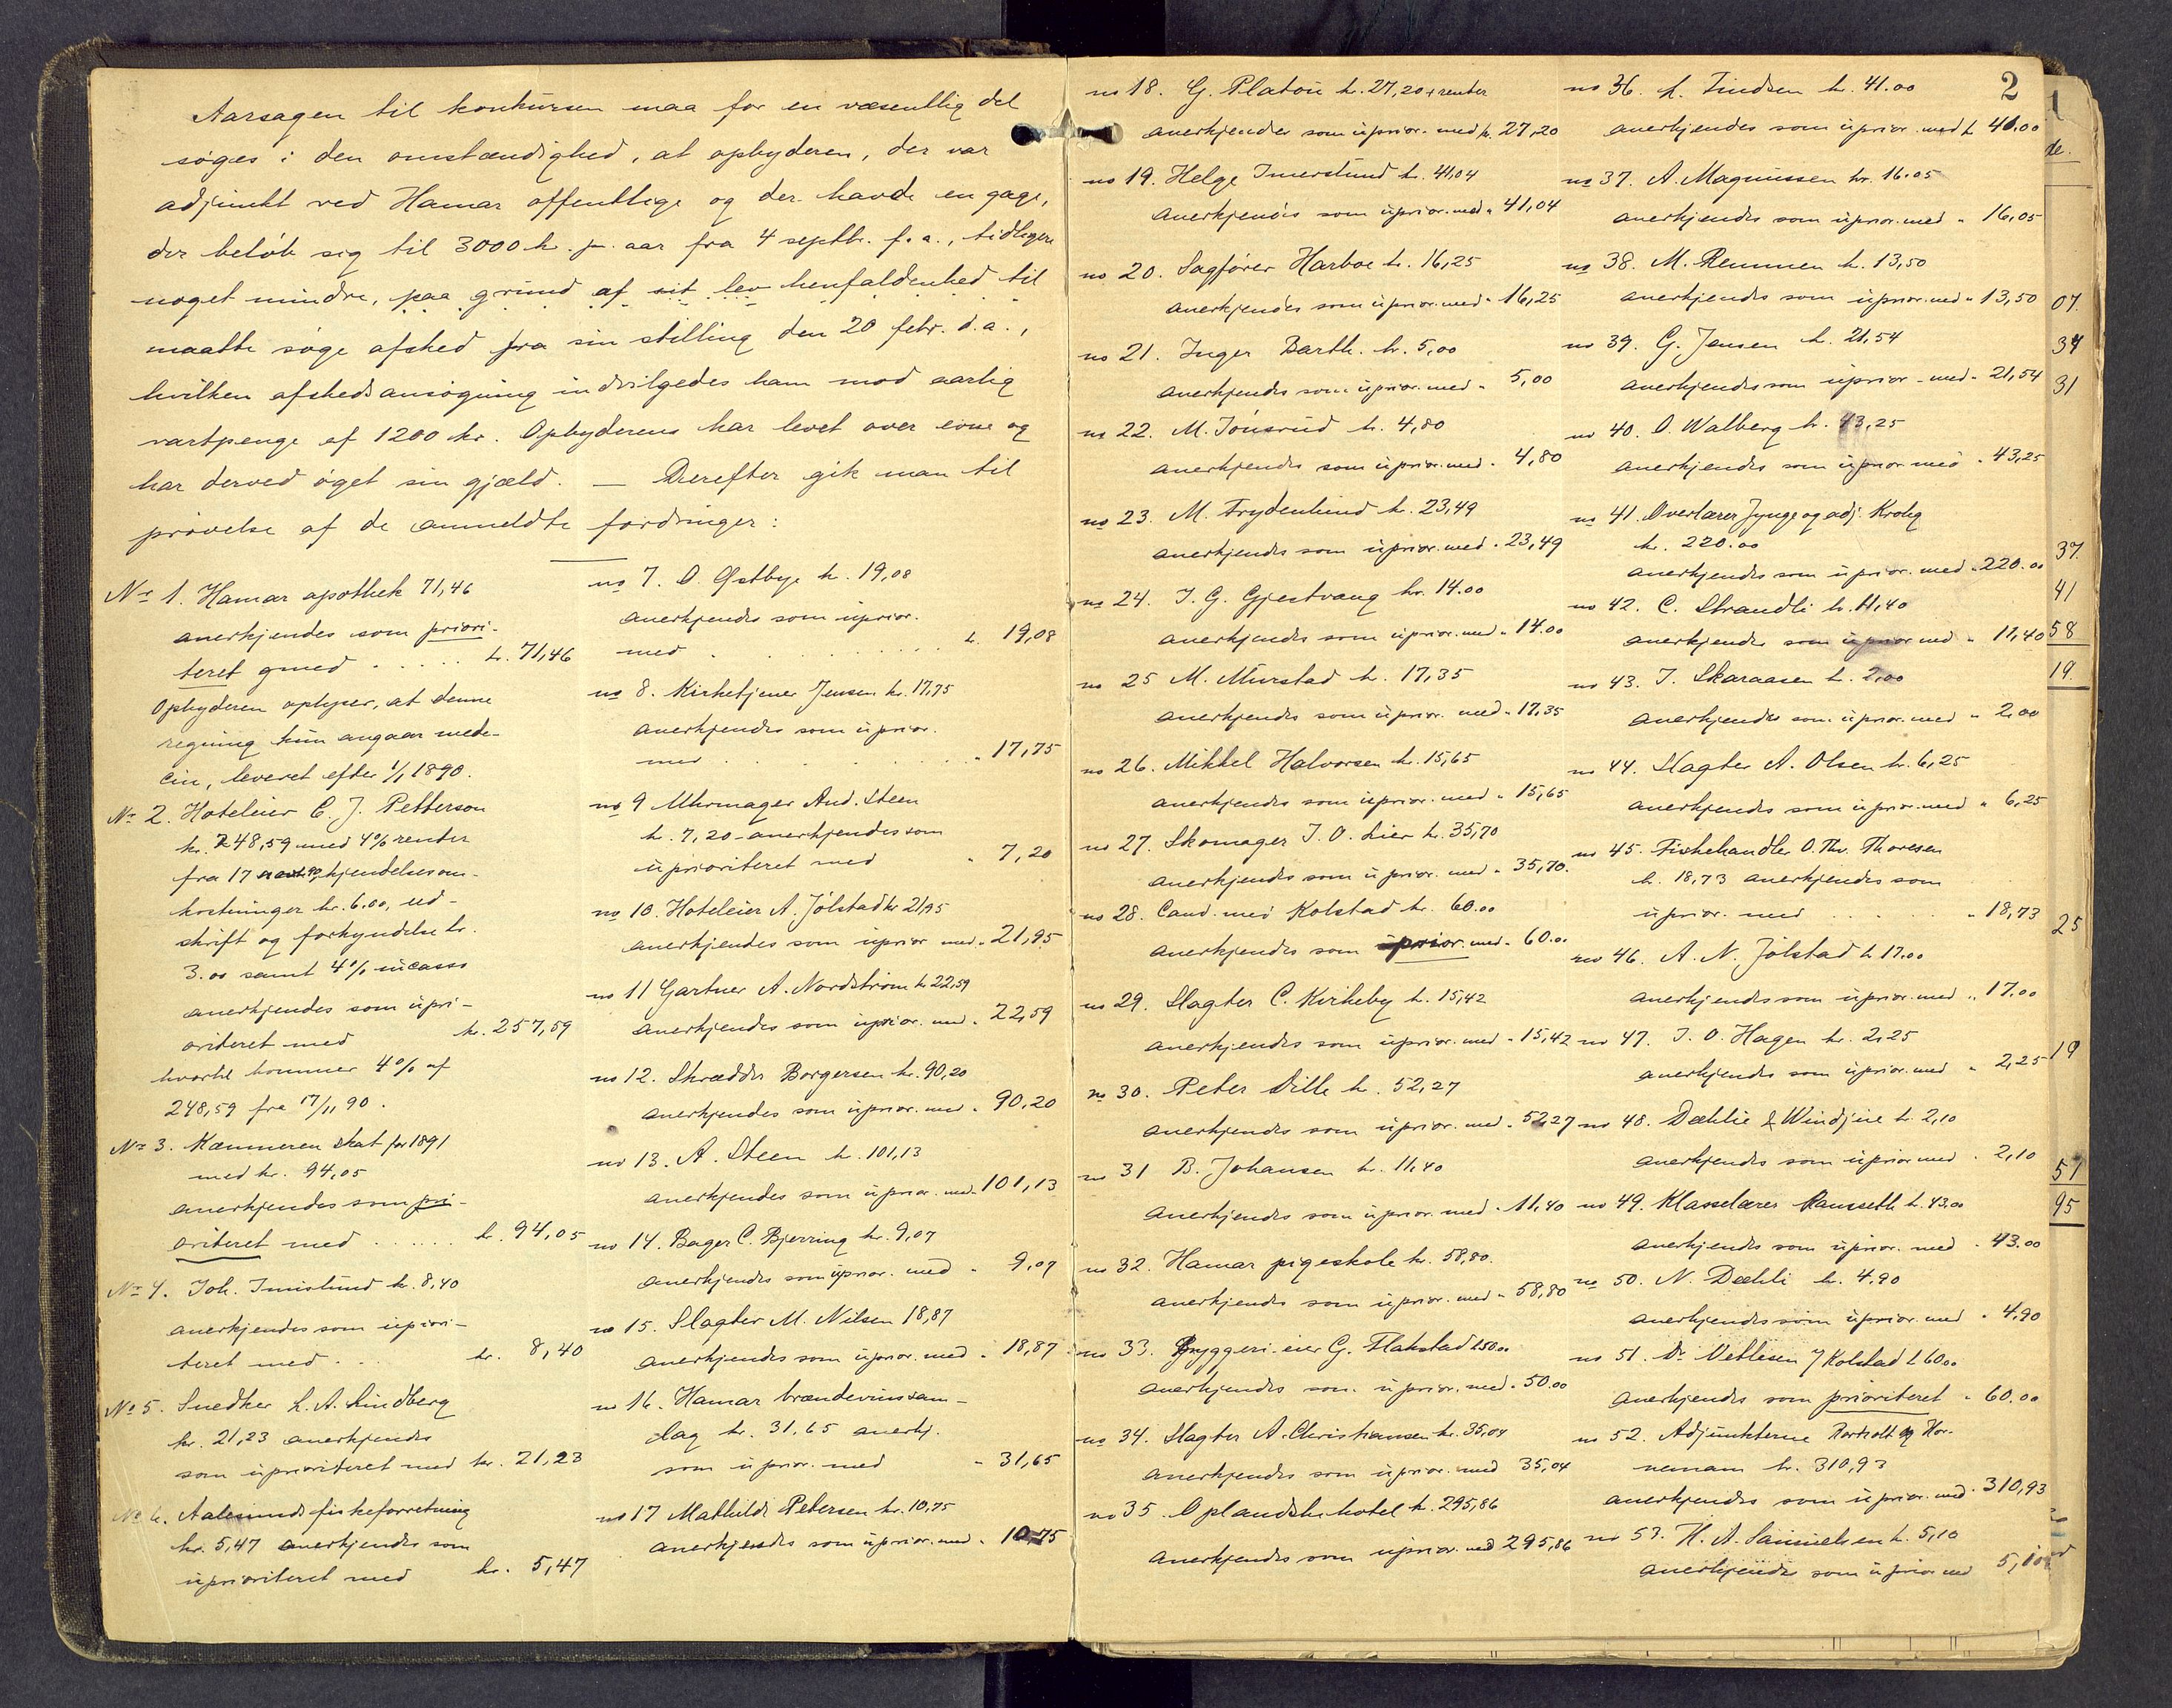 Aarsagen til konkursen maa for en væsentlig del
søges i den omstændighed, at opbyderen, der var
adjunkt ved Hamar offentlige og der havde en gage,
der beløb sig til 3000 kr. pr. aar fra 4 septbr. f.a., tidligere
noget mindre, paa grund af sit lev henfaldenhed til
maatte søge afsked fra sin stilling den 20 febr. d.a.,
hvilken afskedsansøgning indvilgedes ham mod aarlig
vartpenge af 1200 kr. Opbyderens har levet over evne og
har derved øget sin gjæld. — Derefter gik man til
prøvelse af de anmeldte fordringer:
No 1. Hamar apothek 71,46
anerkjendes som priori-
teret med ..... kr. 71,46
Opbyderen oplyser, at denne
regning kun angaar mede-
cin, leveret efter 1/1 1890.
No 2. Hoteleier C. J. Petterson
kr. 248,59 med 4% renter
fra 17 kjendelsesom-
kostninger kr. 6.00, ud-
skrift og forkyndelse kr.
3.00 samt 4% incasso
anerkjendes som upri-
oriteret med kr. 257,59
hvortil kommer 4% af
248,59 fra 17/11 90.
No 3. Kæmneren skat for 1891
med kr. 94,05
anerkjendes som pri-
oriteret med ..... kr. 94,05
No 4. Joh. Imislund kr. 8,40
anerkjendes som upriori-
teret med ... kr. 8,40
No 5. Snedker L. A. Lindberg
kr. 21,23 anerkjendes
som uprioriteret med kr. 21,23
No 6. Aalesunds fiskeforretning
kr. 5,47 anerkjendes som
uprioriteret med kr. 5,47
no 7. O. Østbye kr. 19,08
anerkjendes som uprior.
med ........ kr. 19,08
no 8. Kirketjener Jensen kr. 17,75
anerkjendes som uprior.
med ........ " 17,75
no 9 Uhrmager And. Steen
kr. 7,20 - anerkjendes som
uprioriteret med " 7,20
no 10. Hoteleier A. Jølstad kr 21,95
anerkjendes som uprior med " 21,95
no 11 Gartner A. Nordstrøm kr 22,59
anerkjendes som uprior. med " 22,59
no 12. Skrædder Borgersen kr. 90,20
anerkjendes som uprior. med " 90,20
no 13. A. Steen kr. 101,13
anerkjendes som uprior. med " 101,13
no 14. Bager C. Bjerring kr. 9,07
anerkjendes som uprior. med " 9,07
no 15. Slagter M. Nilsen 18,87
anerkjendes som uprior. med " 18,87
no 16. Hamar brændevinssam-
lag kr. 31,65 anerkj.
som uprior. med " 31,65
no 17 Mathilde Petersen kr. 10,75
anerkjendes som uprior. med " 10,75
no 18. G. Platou kr. 27,20 + renter
anerkjendes som uprior. med kr. 27,20
no 19. Helge Imerslund kr. 41,04
anerkjendes som uprior. med " 41,04
no 20. Sagfører Harboe kr. 16,25
anerkjendes som uprior. med " 16,25
no 21. Inger Barth. kr. 5,00
anerkjendes som uprior. med " 5,00
no 22. M. Jonsrud kr. 4,80
anerkjendes som uprior. med " 4,80
no 23. M. Frydenlund kr. 23,49
anerkjendes som uprior. med " 23,49
no 24. J. G. Gjestvang kr. 14.00
anerkjendes som uprior. med " 14.00
no 25 M. Murstad kr. 17,35
anerkjendes som uprior. med " 17,35
no 26. Mikkel Halvorsen kr. 15,65
anerkjendes som uprior. med " 15,65
no 27. Skomager J. O. Lier kr. 35,70
anerkjendes som uprior. med " 35,70.
no 28. Cand. med Kolstad kr. 60.00
anerkjendes som prior. med " 60.00
no 29. Slagter C. Kirkeby kr. 15,42
anerkjendes som uprior. med " 15,42
no 30. Peter Dille kr. 52,27
anerkjendes som uprior. med " 52,27
no 31 B. Johansen kr. 11,40
anerkjendes som uprior. med " 11,40
no 32. Hamar pigeskole kr. 58,80.
anerkjendes som uprior. med " 58,80
no 33. Bryggeri-eier G. Flakstad k 50.00
anerkjendes som uprior. med " 50.00
no 34. Slagter A. Christiansen kr. 35,04
anerkjendes som uprior. med 35,04
no 35. Oplandske hotel kr. 295,86
anerkjendes som uprior. med 295,86
2
no 36. L. Tindsen kr. 41.00
anerkjendes som uprior. med kr 41.00
no 37. A. Magnussen kr. 16.05
anerkjendes som uprior. med " 16,05
no 38. M. Remmen kr. 13,50
anerkjendes som uprior. med " 13,50
no 39. G. Jensen kr. 21,54
anerkjendes som uprior. med " 21,54
no 40. O. Walberg kr. 43,25
anerkjendes som uprior. med " 43,25
no 41. Overlærer Jynge og adj. Krohg
kr. 220.00
anerkjendes som uprior. med " 220.00
no 42. C. Strandli kr. 11,40
anerkjendes som uprior med " 11,40
no 43. J. Skaraasen kr. 2,00
anerkjendes som uprior. med " 2,00
no 44. Slagter A. Olsen kr. 6,25
anerkjendes som uprior. med " 6,25
no 45. Fiskehandler O. Thv. Thoresen
kr. 18,73 anerkjendes som
uprior. med ..... " 18,73
no 46. A. N. Jølstad kr 17.00
anerkjendes som uprior. med " 17,00
no 47. J. O. Hagen kr. 2,25
anerkjendes som uprior. med " 2,25
no 48. Dæhlie & Windju kr. 2,10
anerkjendes som uprior med " 2,10
no 49. Klasselærer Ramseth kr. 43.00
anerkjendes som uprior. med " 43.00
no 50. N. Dæhli kr. 4.90
anerkjendes som uprior. med " 4,90
no 51. Dr Vetlesen & Kolstad kr 60.00
anerkjendes som prioriteret " 60.00
no 52. Adjunkterne Hor-
nemann kr. 310,93
anerkjendes som uprior. med " 310,93
no 53. H. A. Samuelsen kr. 5,10
anerkjendes som uprior med 5,10
1
de.
07.
34
31
37.
41
58
19.
25
19
51
95